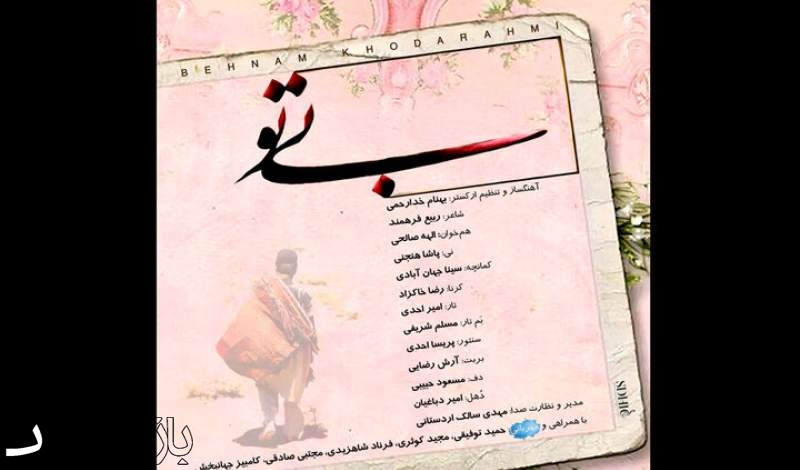 BEHNAM KHODARAHMI
بی تو
آهنگساز و تنظیم ارکستر: بهنام خدارحمی
شاعر: ربیع فرهمند
هم‌خوان: الهه صالحی
نی: پاشا هنجنی
کمانچه: سینا جهان آبادی
کرنا: رضا خاکزاد
تار: امیر احدی
بَم تار: مسلم شریفی
سنتور: پریسا احدی
بربت: آرش رضایی
دف: مسعود حبیبی
دُهل: امیر دباغیان
مدیر و نظارت صدا: مهدی سالک اردستانی
با همراهی و حمید توفیقی، مجید کوثری، فرناد شاهزیدی، مجتبی صادقی، کامبیز